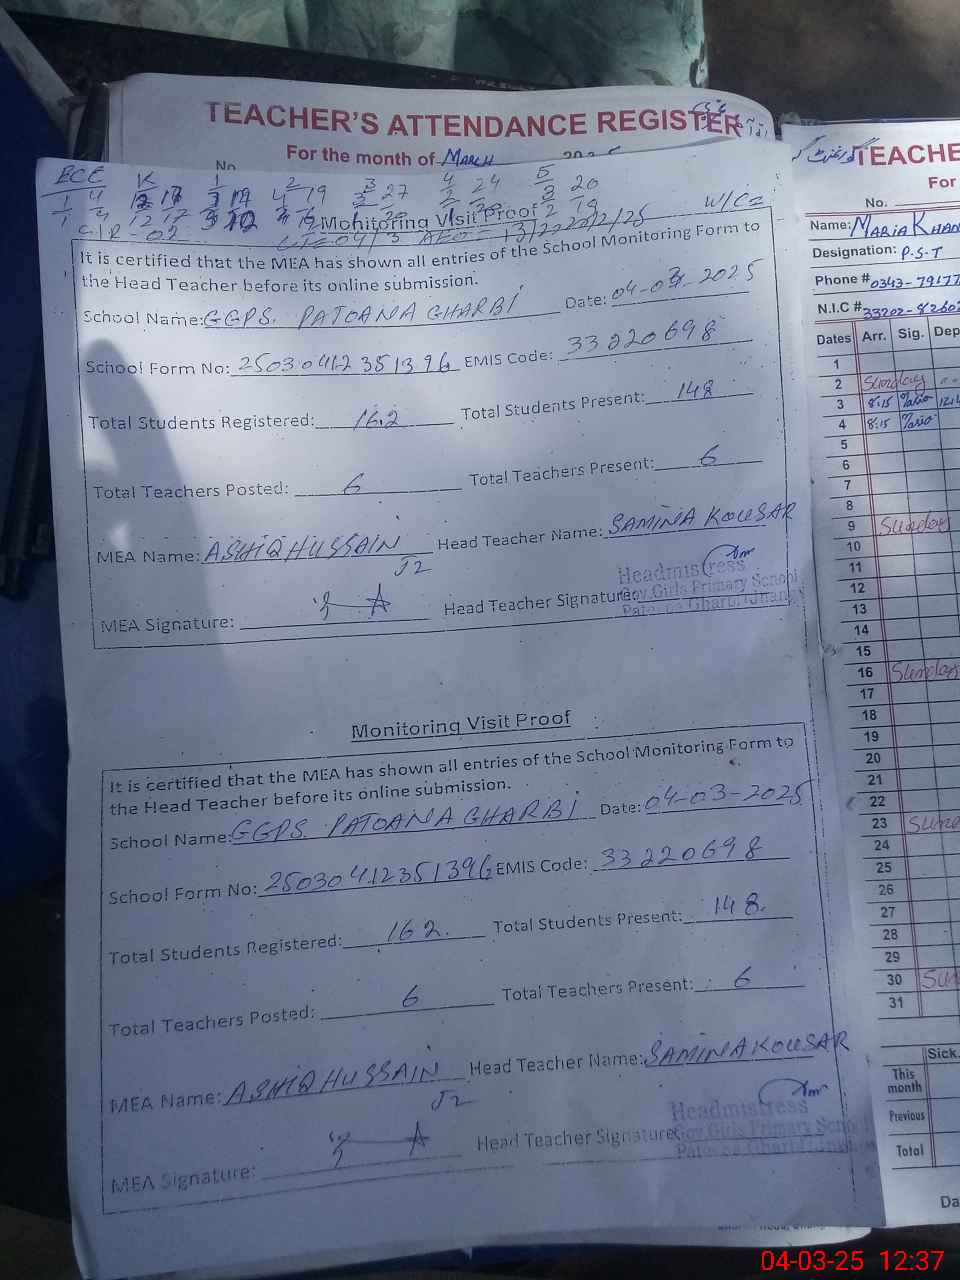 TEACHER'S ATTENDANCE REGISTER
For the month of MARCH
No
ECE K 1 2 3 4 5
Monitoring Visit Proof
It is certified that the MEA has shown all entries of the School Monitoring Form to
the Head Teacher before its online submission.
School Name: GGPS. PATOANA GHARBI Date: 04-03-2025
School Form No: 25030412351396 EMIS Code: 33220698
Total Students Registered: 162 Total Students Present: 148
Total Teachers Posted: 6 Total Teachers Present: 6
MEA Name: ASHIQ HUSSAIN Head Teacher Name: SAMINA KOUSAR
J2
MEA Signature: Head Teacher Signature
Headmistress
Gov. Girls Primary School
Monitoring Visit Proof
It is certified that the MEA has shown all entries of the School Monitoring Form to
the Head Teacher before its online submission.
School Name: GGPS PATOANA GHARBI Date: 04-03-2025
School Form No: 25030412351396 EMIS Code: 33220698
Total Students Registered: 162. Total Students Present: 148.
Total Teachers Posted: 6 Total Teachers Present: 6
MEA Name: ASHIQ HUSSAIN Head Teacher Name: SAMINA KOUSAR
J2
MEA Signature: Head Teacher Signature
Headmistress
Gov. Girls Primary School
TEACHE
For
No.
Name: MARIA KHAN
Designation: P.S.T
Phone # 0343-79177
N.I.C # 33202-82602
Dates Arr. Sig. Dep
1
2 Sunday
3 8:15 Maria
4 8:15 Maria
5
6
7
8
9 Sunday
10
11
12
13
14
15
16 Sunday
17
18
19
20
21
22
23 Sund
24
25
26
27
28
29
30 Sun
31
Sick.
This
month
Previous
Total
Da
04-03-25 12:37